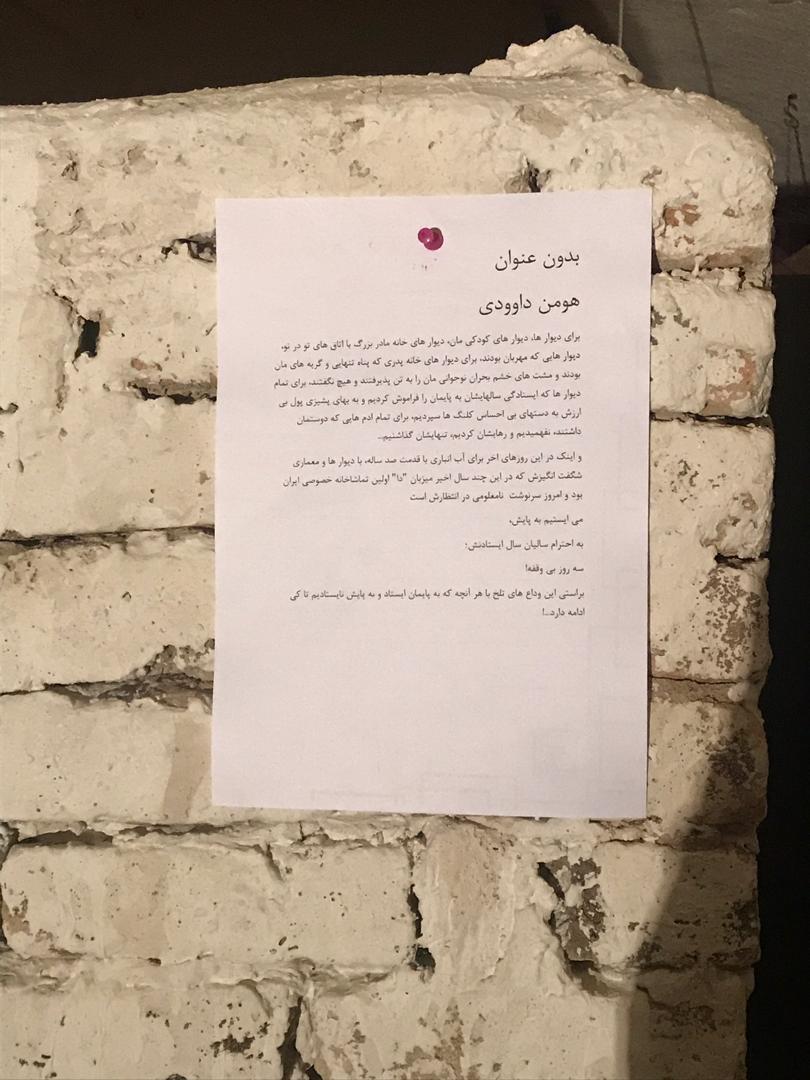 بدون عنوان
هومن داوودی
برای دیوار ها، دیوار های کودکی مان، دیوار های خانه مادر بزرگ با اتاق های تو در تو،
دیوار هایی که مهربان بودند، برای دیوار های خانه پدری که پناه تنهایی و گریه های مان
بودند و مشت های خشم بحران نوجوانی مان را به تن پذیرفتند و هیچ نگفتند، برای تمام
دیوار ها که ایستادگی سالهایشان به پایمان را فراموش کردیم و به بهای پشیزی پول بی
ارزش به دستهای بی احساس کلنگ ها سپردیم، برای تمام ادم هایی که دوستمان
داشتند، نفهمیدیم و رهایشان کردیم، تنهایشان گذاشتیم...
و اینک در این روزهای اخر برای آب انباری با قدمت صد ساله، با دیوار ها و معماری
شگفت انگیزش که در این چند سال اخیر میزبان "دا" اولین تماشاخانه خصوصی ایران
بود و امروز سرنوشت نامعلومی در انتظارش است
می ایستیم به پایش،
به احترام سالیان سال ایستادنش؛
سه روز بی وقفه!
براستی این وداع های تلخ با هر آنچه که به پایمان ایستاد و به پایش نایستادیم تا کی
ادامه دارد...!